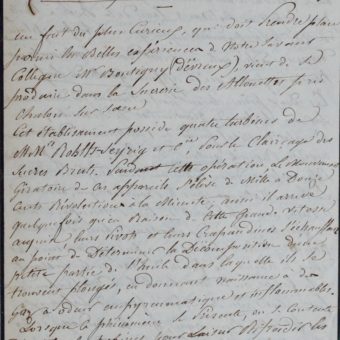 un fait des plus Curieux, qui doit prendre place
parmi les Belles expériences de Notre Savant
Collègue Mr Boutigny (d'Évreux) vient de se
produire dans la Sucrerie des Allouettes près
Chalon sur Saône
Cet établissement possède quatre turbines de
M.Mrs Rohlfs Seyrig et Cie pour le Clairçage des
Sucres Bruts. Pendant cette opération Le Mouvement
Giratoire de Ces appareils s'élève de Mille à Douze
Cents Révolutions à la Minute, aussi il arrive
quelquefois qu'en Raison de Cette grande vitesse
leurs Pivots et leurs Crapaudines s'échauffent
au point de Déterminer la Décomposition d'une
petite partie de l'huile dans laquelle ils se
trouvent plongés, en donnant naissance à du
Gaz à odeur empyreumatique et inflammable.
Lorsque le phénomène se Présente, on se Contente
pour Laisser Refroidir les